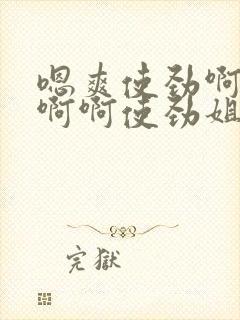 嗯爽使劲啊
啊啊使劲姐
完獄